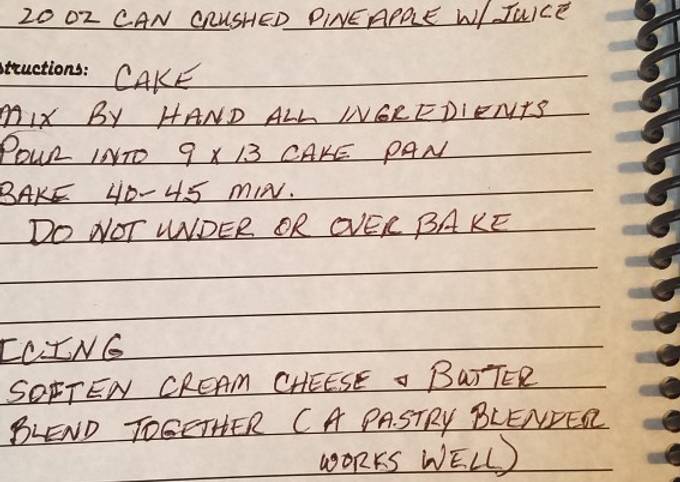 20 OZ CAN CRUSHED PINEAPPLE W/ JUICE
structions: CAKE
MIX BY HAND ALL INGREDIENTS
POUR INTO 9 X 13 CAKE PAN
BAKE 40-45 MIN.
DO NOT UNDER OR OVER BAKE
ICING
SOFTEN CREAM CHEESE & BUTTER
BLEND TOGETHER (A PASTRY BLENDER
WORKS WELL)